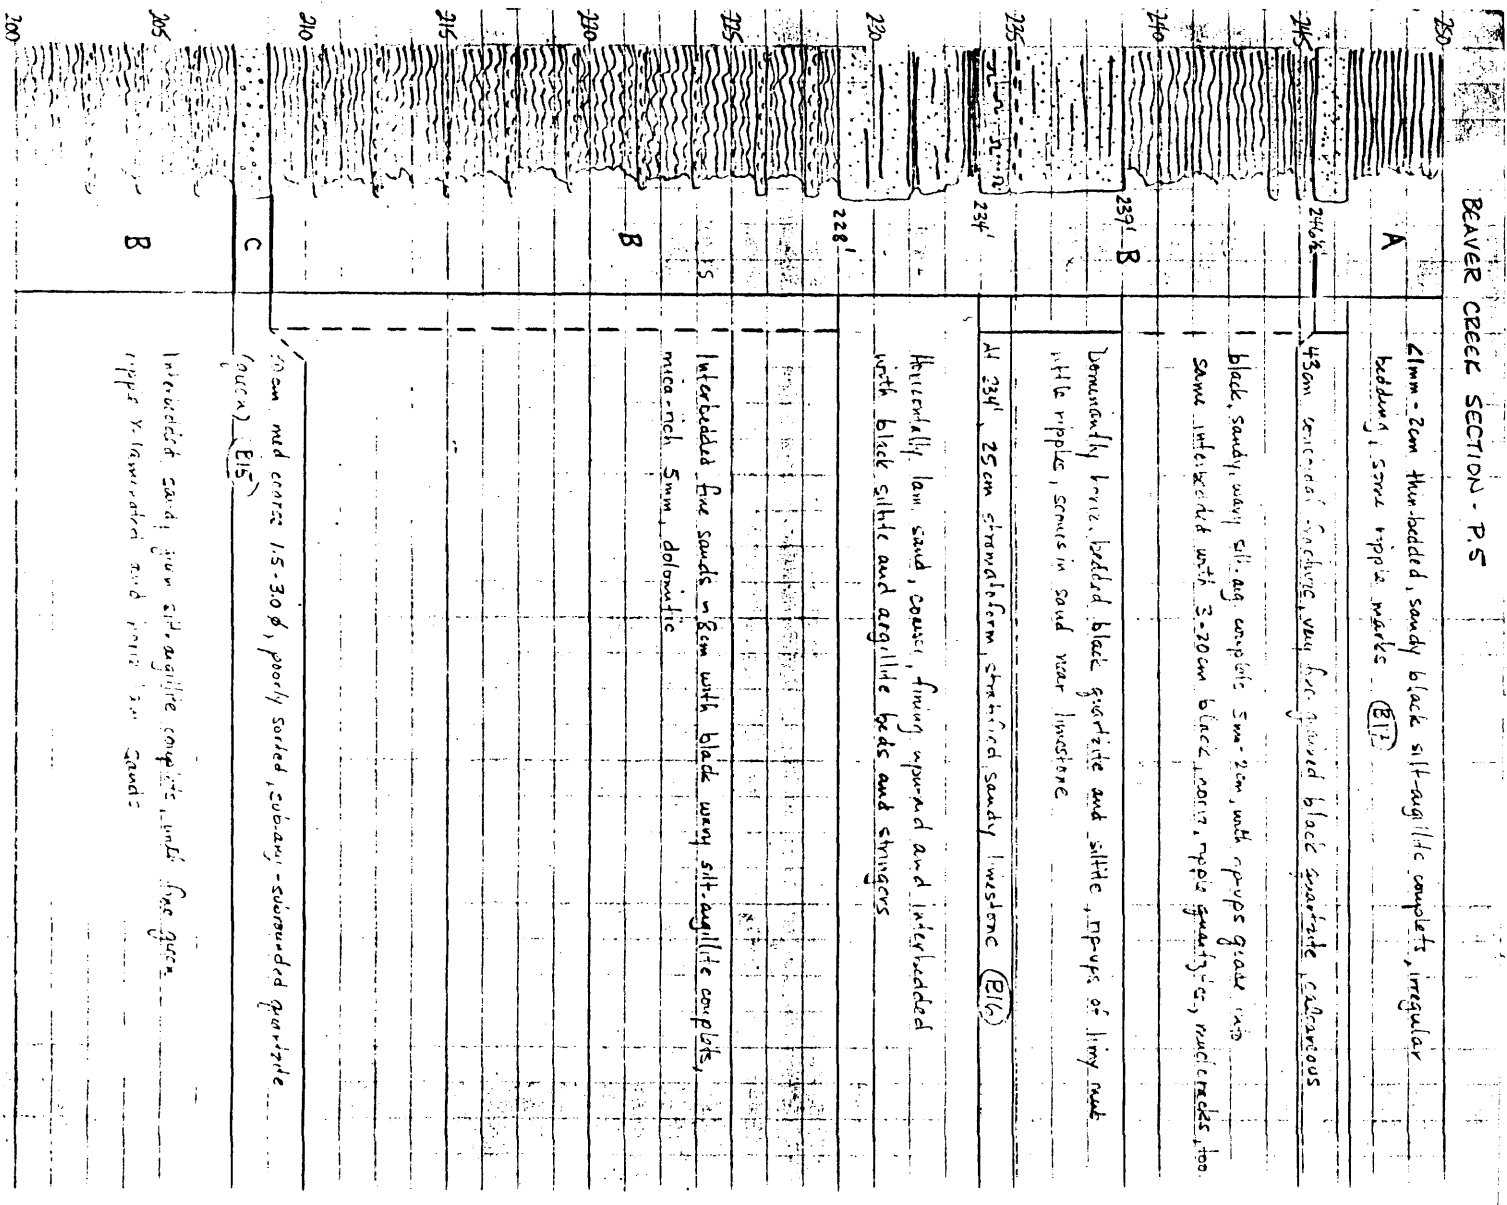 BEAVER CREEK SECTION - P.5
250
A
<1mm - 2cm thin-bedded, sandy black silt-argillite couplets, irregular
bedding, some ripple marks (B17)
246½'
245
43cm conchoidal fracture, very fine grained black quartzite, calcareous
black, sandy, wavy silt-arg couplets 5mm-2cm, with rip-ups grade into
same interbedded with 3-20cm black, horiz, ripple quartzites, mudcracks, too
240
239'
B
Dominantly horiz. bedded black quartzite and siltite, rip-ups of limy mud
little ripples, scours in sand near limestone
235
234'
At 234', 25cm stromatoform, stratified sandy limestone (B16)
230
Horizontally lam. sand, coarse, fining upward and interbedded
with black siltite and argillite beds and stringers
228'
225
B
Interbedded fine sands ~8cm with black wavy silt-argillite couplets,
mica-rich 5mm, dolomitic
220
215
210
med coarse 1.5-3.0 ø, poorly sorted, subang-subrounded quartzite
C
(B15)
205
Interbedded sandy, silt-argillite couplets, fine green
B
and in sands
200